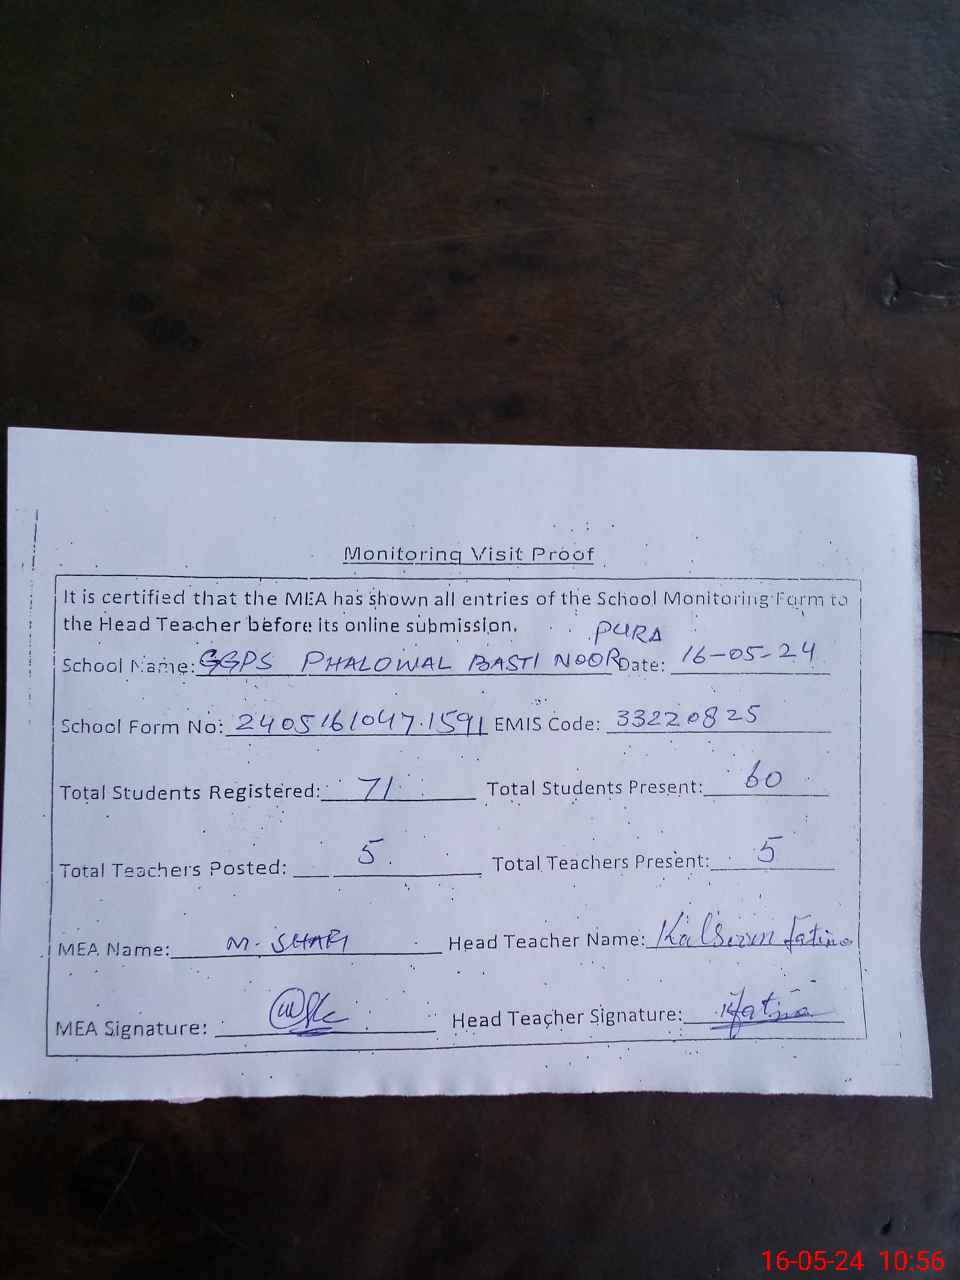 Monitoring Visit Proof
It is certified that the MEA has shown all entries of the School Monitoring Form to
the Head Teacher before its online submission.
PURA
School Name: GGPS PHALOWAL BASTI NOOR Date: 16-05-24
School Form No: 2405161047.1591 EMIS Code: 33220825
Total Students Registered: 71 Total Students Present: 60
Total Teachers Posted: 5 Total Teachers Present: 5
MEA Name: M. SHAFI Head Teacher Name: Kalsoom Fatima
MEA Signature: Head Teacher Signature: Kfatima
16-05-24 10:56